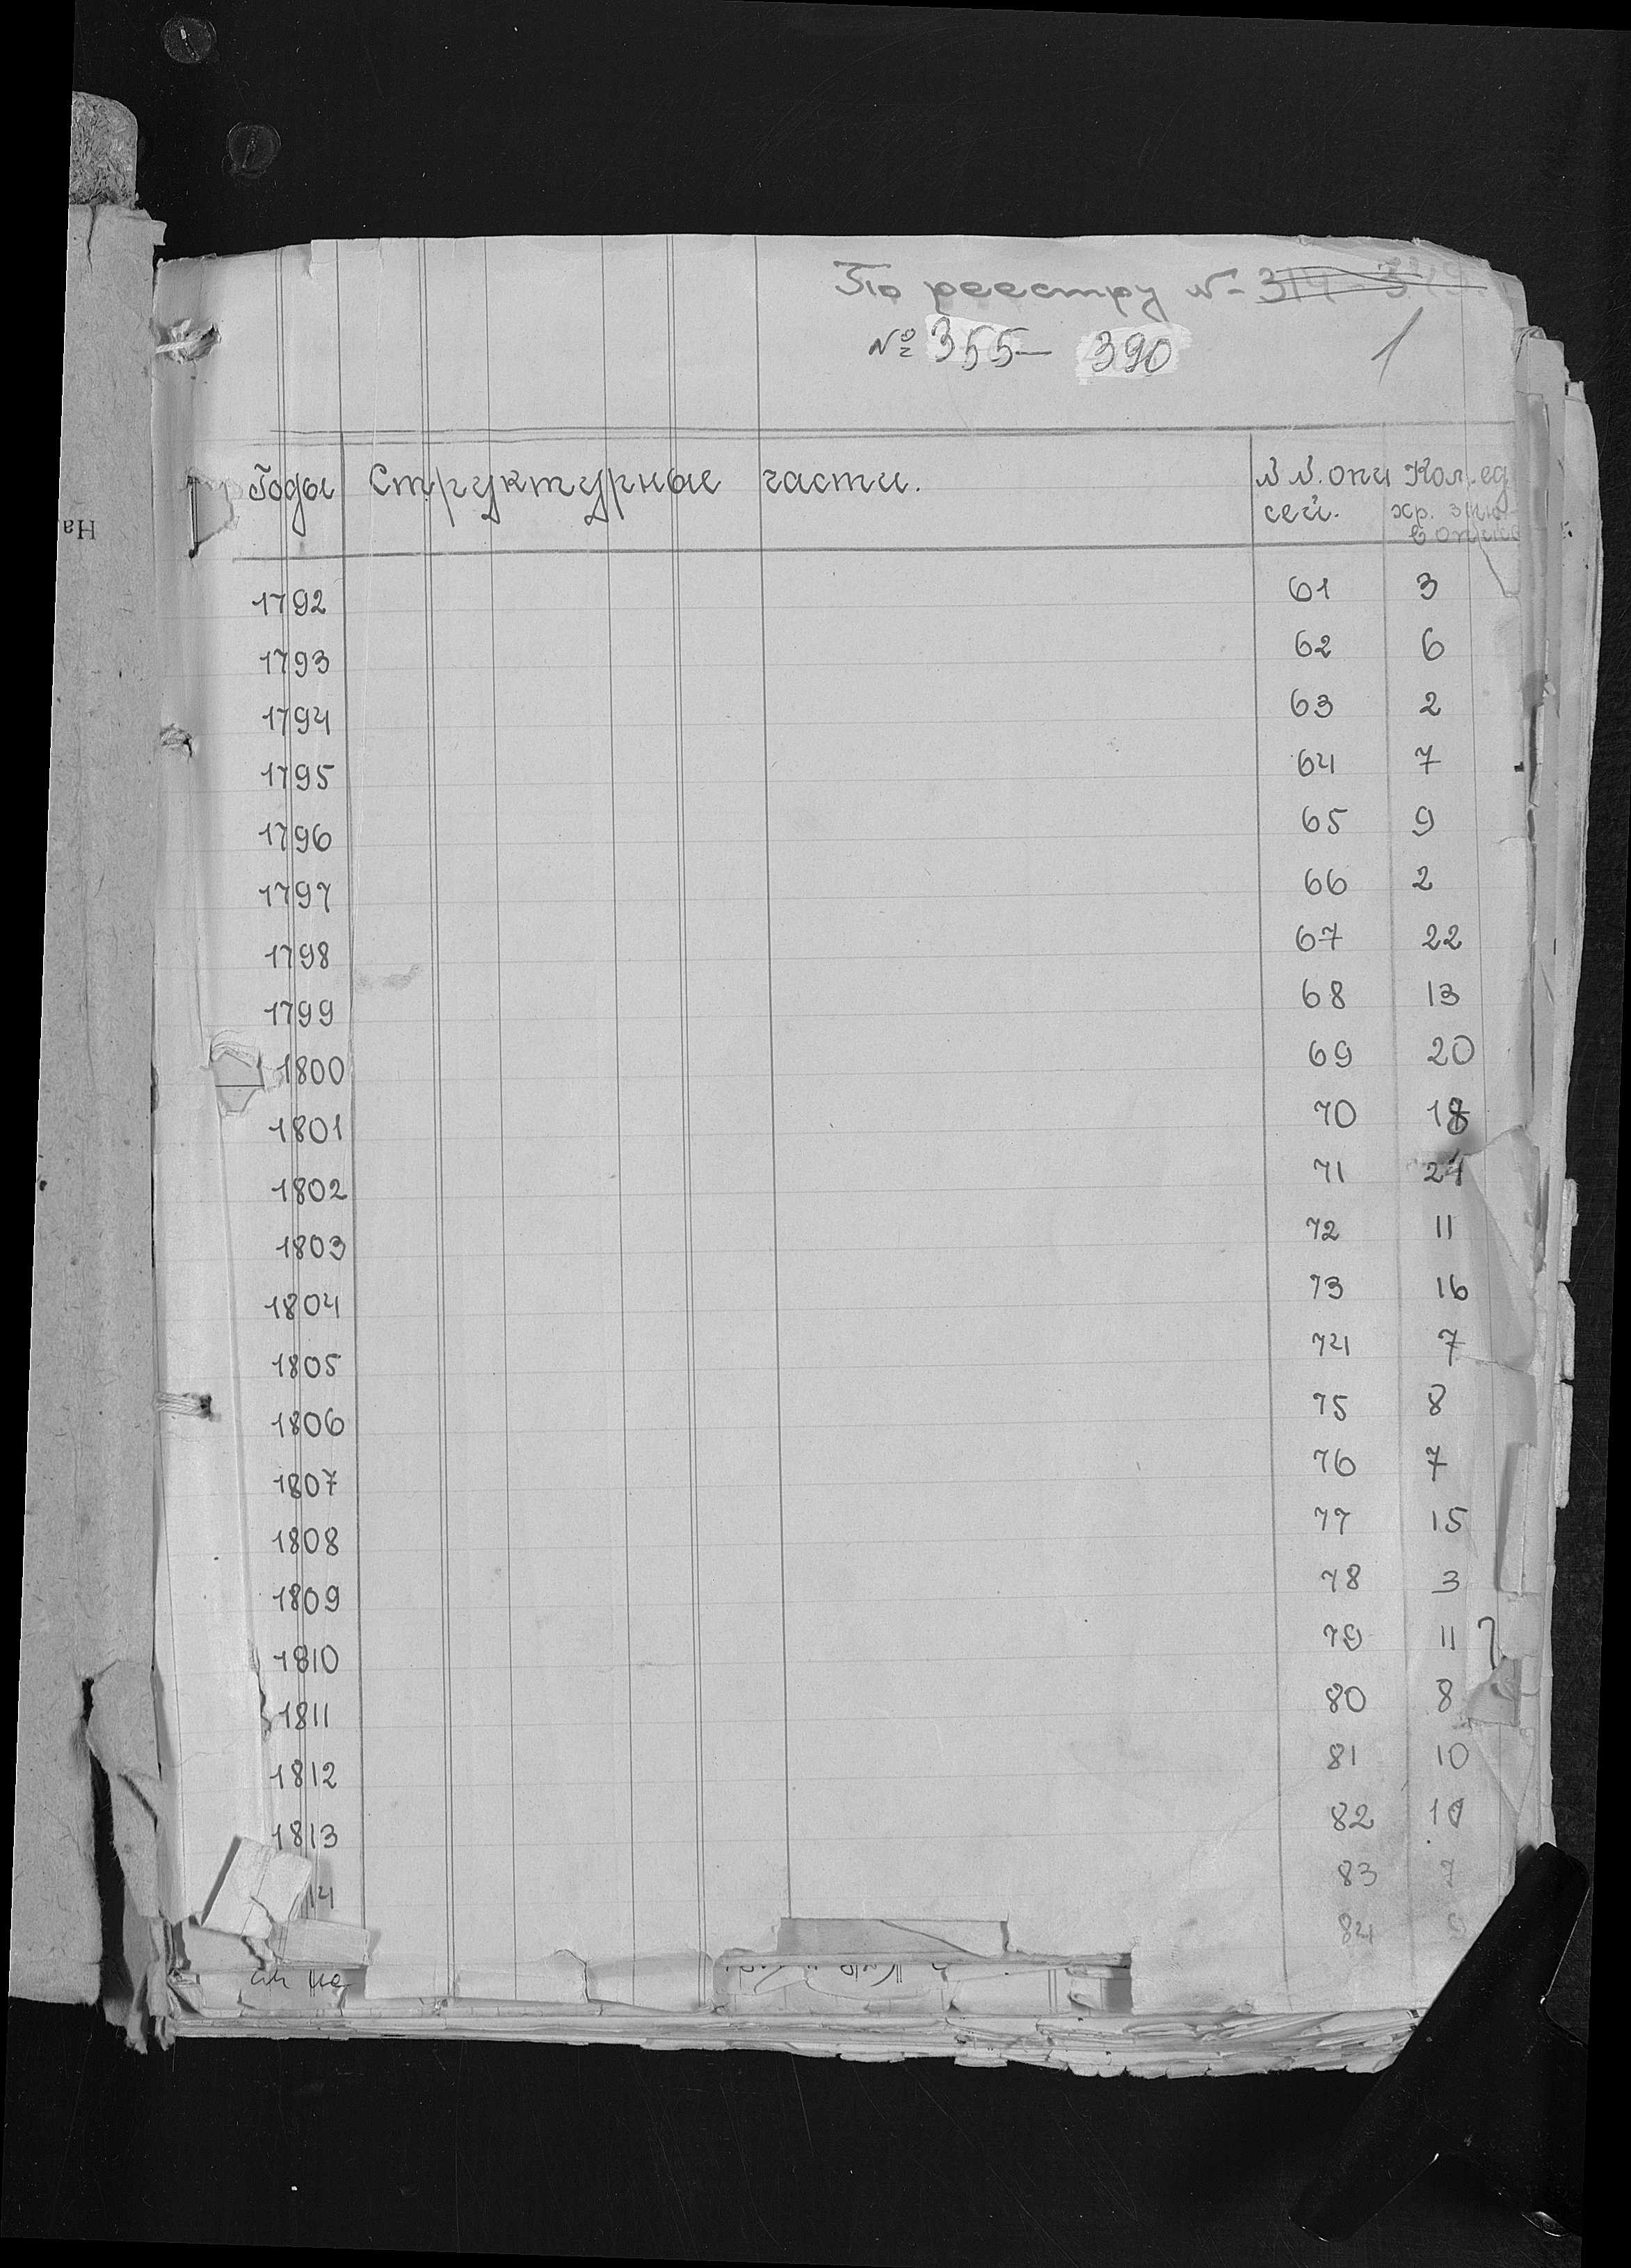 По реестру №
№ 355 — 390
1
Годы Структурные части. №№ опи Кол. ед
сей. хр.
в
1792 61 3
1793 62 6
1794 63 2
1795 64 7
1796 65 9
1797 66 2
1798 67 22
1799 68 13
1800 69 20
1801 70 18
1802 71 21
1803 72 11
1804 73 16
1805 74 7
1806 75 8
1807 76 7
1808 77 15
1809 78 3
1810 79 11
1811 80 8
1812 81 10
1813 82 10
14 83 7
84
На